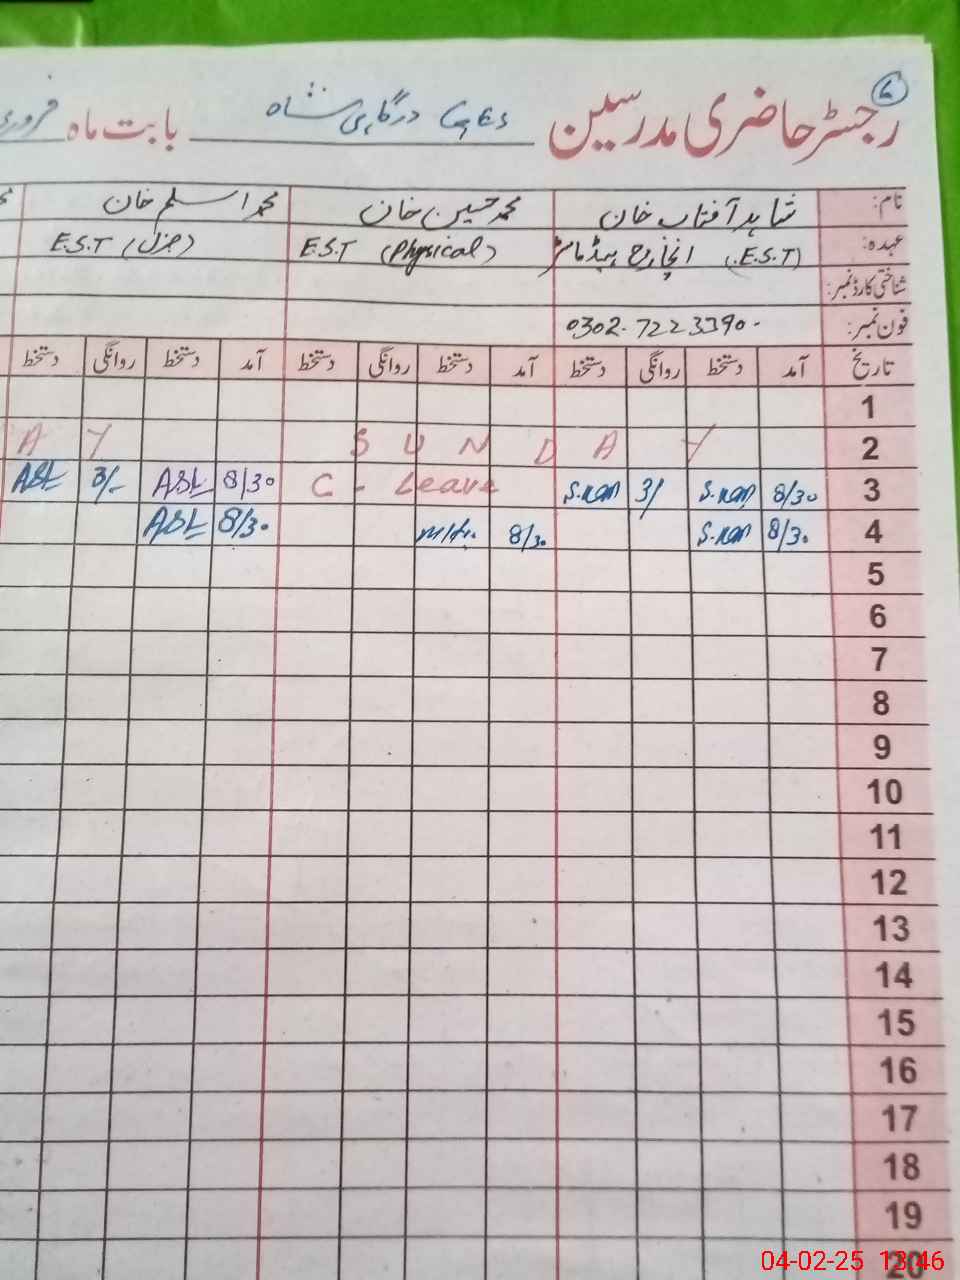 رجسٹر حاضری مدرسین درگاہی شاہ بابت ماہ فروری
نام: شاہد آفتاب خان محمد حسین خان محمد اسلم خان
عہدہ: (E.S.T) انچارج ہیڈ ماسٹر E.S.T (Physical) E.S.T (جنرل)
شناختی کارڈ نمبر:
فون نمبر: 0302-7223390
تاریخ آمد دستخط روانگی دستخط آمد دستخط روانگی دستخط آمد دستخط روانگی دستخط
1
2 S U N D A Y A Y
3 8/30 S.Kan 3/ S.Kan C - Leave 8/30 ASL 3/- ASL
4 8/30 S.Kan 8/30 8/30 ASL
5
6
7
8
9
10
11
12
13
14
15
16
17
18
19
20
04-02-25 13:46